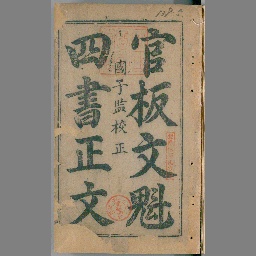 官板文魁
國子監校正
四書正文